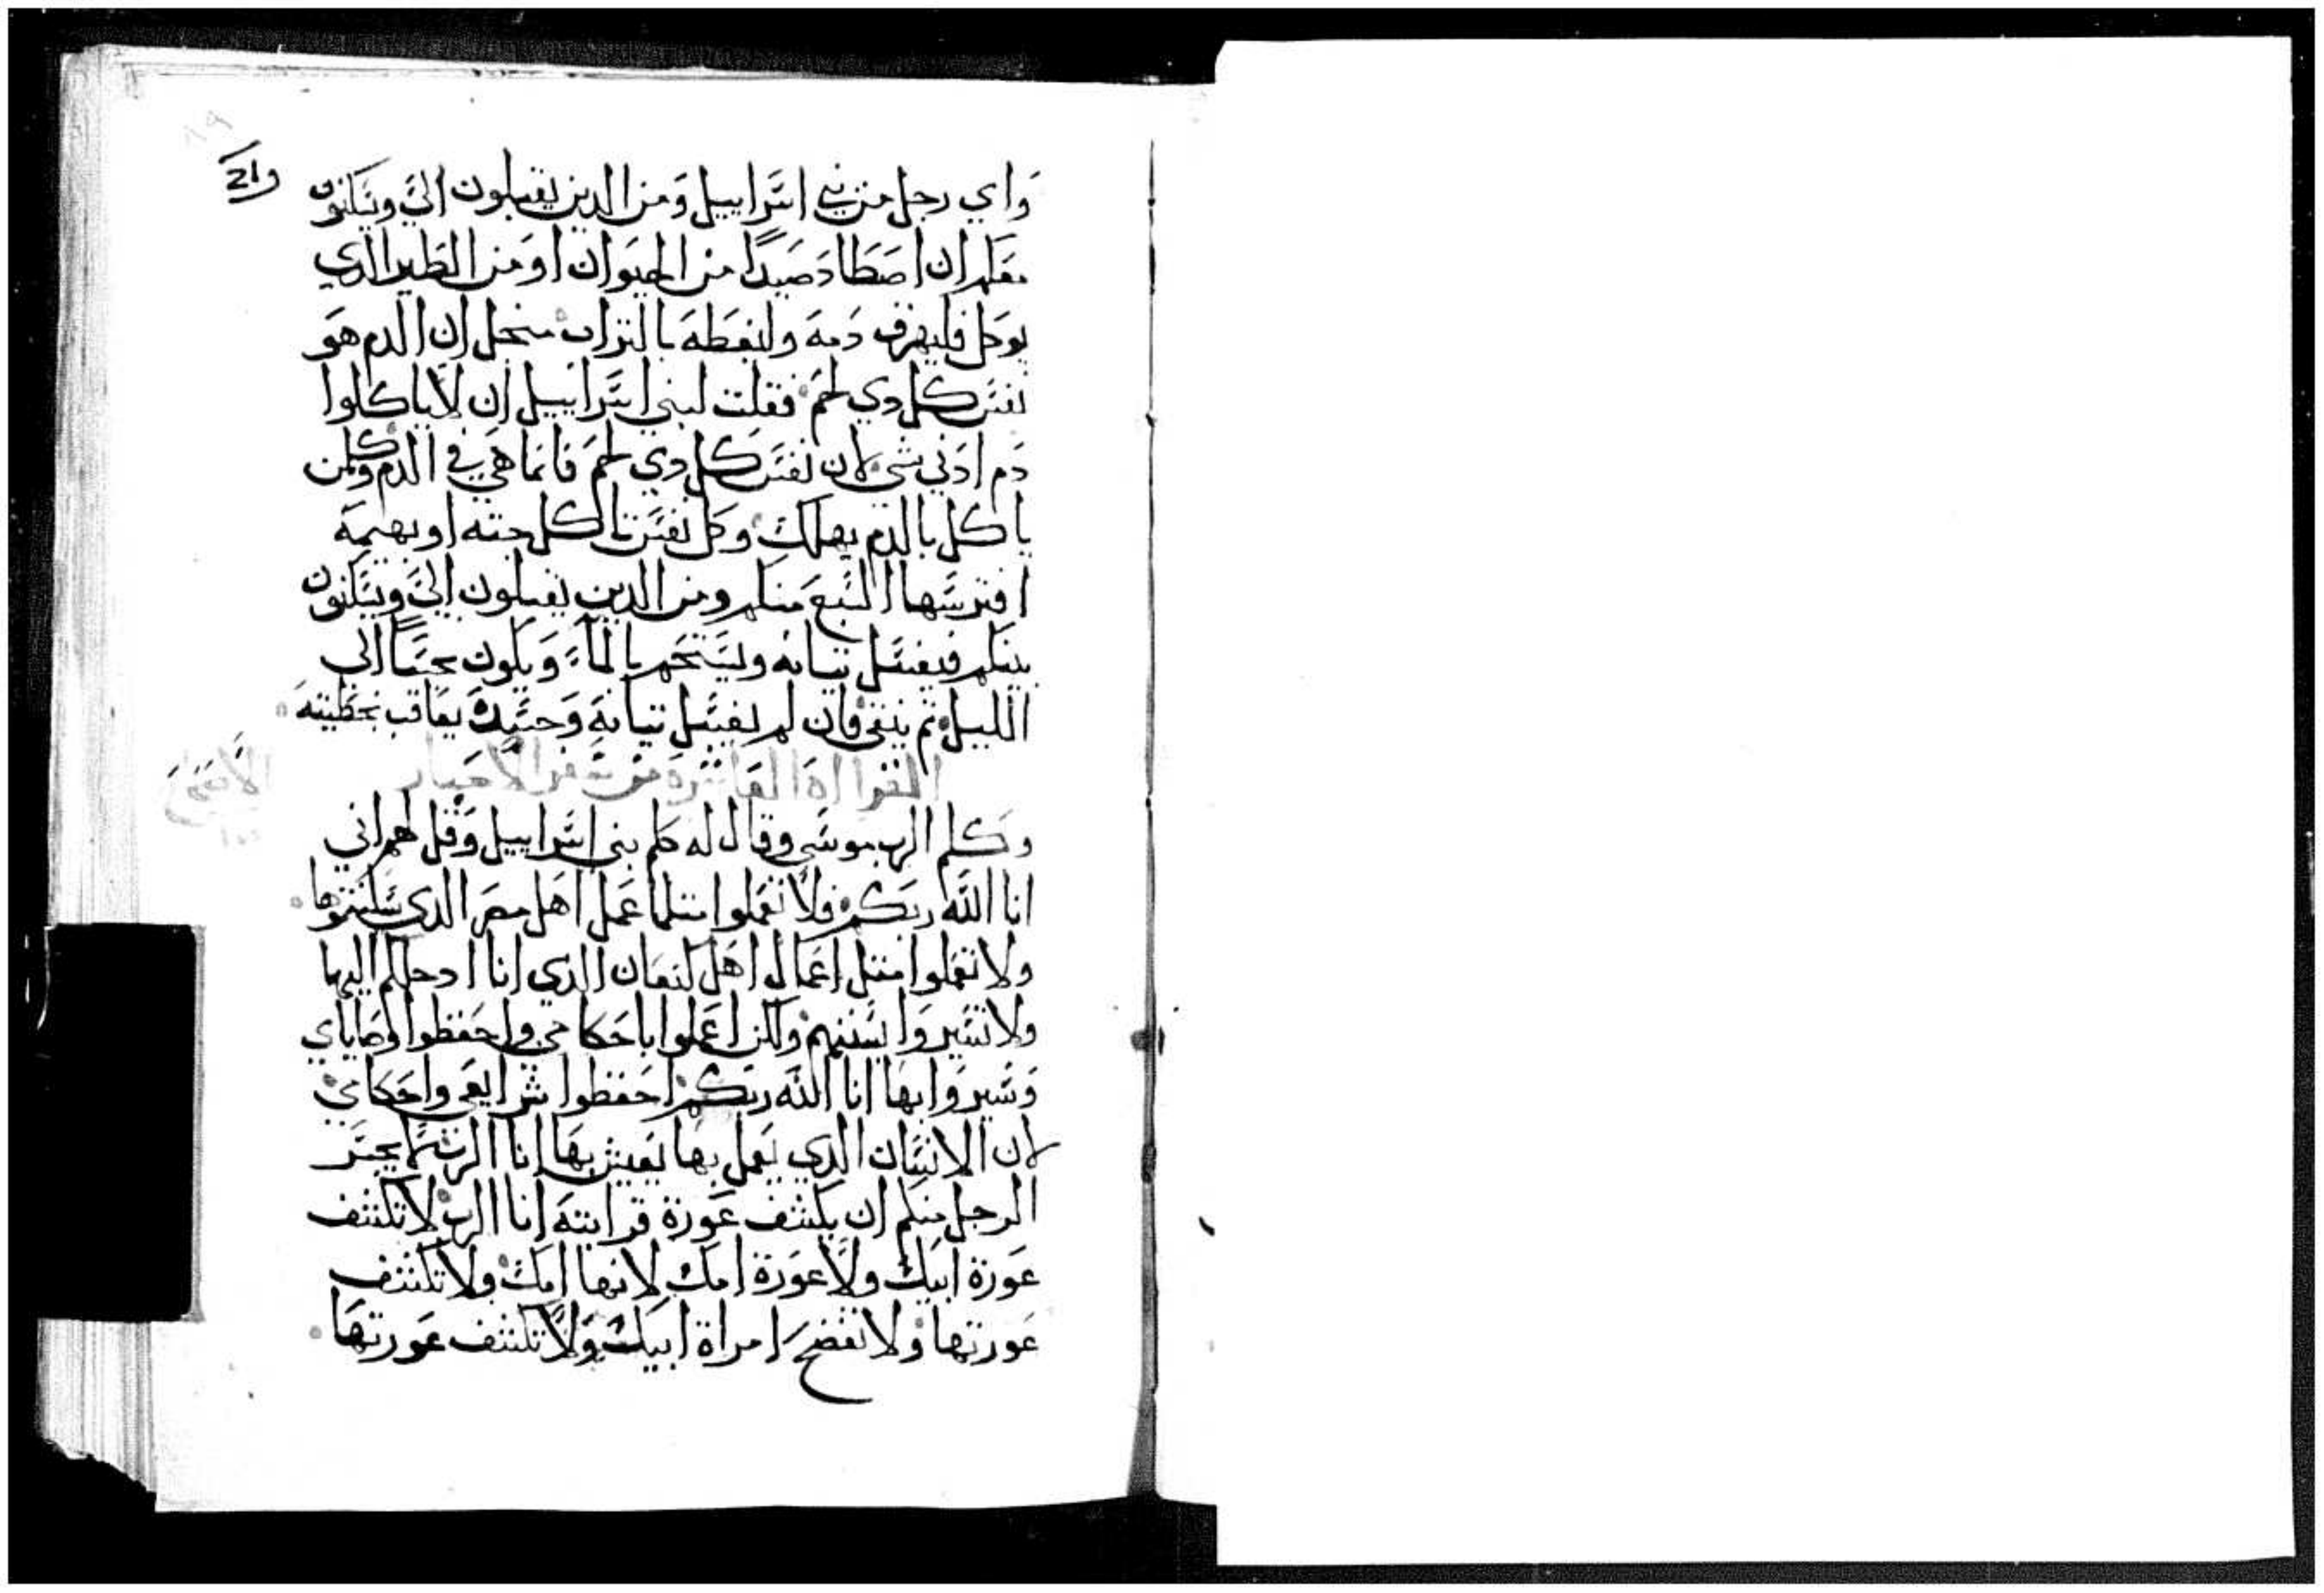 واي رجل من بني اسراييل ومن الدين يقبلون الي ويسكنون
معكم ان اصطاد صيدًا من الحيوان او من الطير الدي
يوكل فليهرق دمه وليغطه بالتراب منجل ان الدم هو
نفس كل دي لحم فقلت لبني اسراييل ان لا ياكلوا
دم ادني شي لان نفس كل دي لحم فانما هي في الدم وكلمن
ياكل بالدم يهلك وكل نفس تاكل جته او بهيمة
افترسها السبع منكم ومن الدين يقبلون الي ويسكنون
بينكم فيغسل تيابه وليستحم بالماء ويكون نجسًا الي
الليل تم ينقي فان لم يغسل تيابه وجسده يعاقب بخطيته
القرااة العاشرة من سفر الاحبار
وكلم الرب موسي وقال له كلم بني اسراييل وقل لهم اني
انا الله ربكم فلا تعملوا متلما عمل اهل مصر الدي سكنتموها
ولا تعملوا متل اعمال اهل كنعان الدي انا ادخلكم اليها
ولا تسيروا بسننهم ولكن اعملوا باحكامي واحفظوا وصاياي
وسيروا بها انا الله ربكم احفظوا شرايعي واحكامي
لان الانسان الدي يعمل بها يعيش بها انا الرب
الرجل منكم ان يكشف عورة قرابته انا الرب لا تكشف
عورة ابيك ولا عورة امك لانها امك ولا تكشف
عورتها ولا تفضح امراة ابيك ولا تكشف عورتها